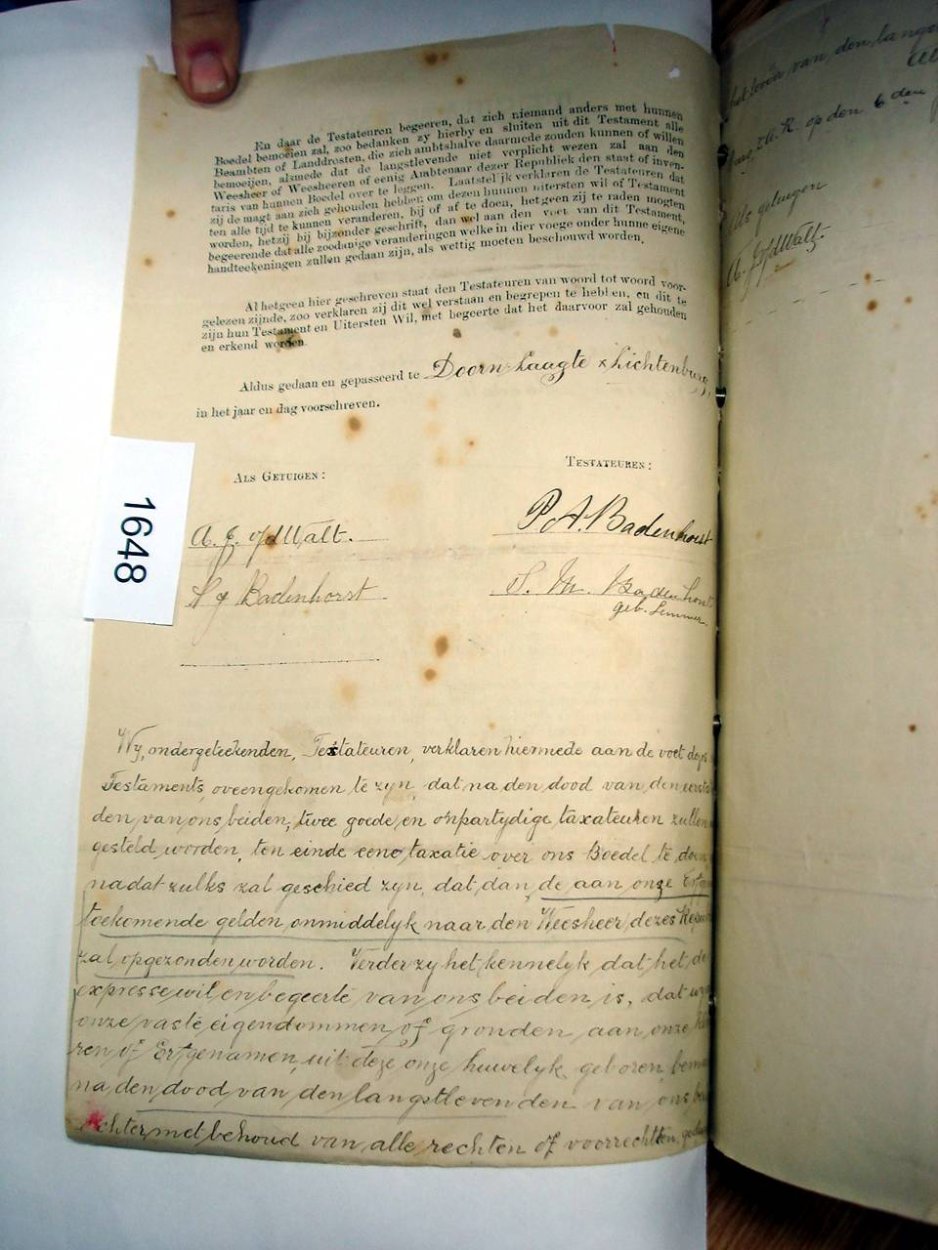 En daar de Testateuren begeeren, dat zich niemand anders met hunnen
Boedel bemoeien zal, zoo bedanken zy hierby en sluiten uit dit Testament alle
Beambten of Landdrosten, die zich ambtshalve daarmede zouden kunnen of willen
bemoeijen, alsmede dat de langstlevende niet verplicht wezen zal aan den
Weesheer of Weesheeren of eenig Ambtenaar dezer Republiek den staat of inven-
taris van hunnen Boedel over te leggen. Laatstelijk verklaren de Testateuren dat
zij de magt aan zich gehouden hebben om dezen hunnen uitersten wil of Testament
ten alle tijd te kunnen veranderen, bij of af te doen, hetgeen zij te raden mogten
worden, hetzij bij bijzonder geschrift, dan wel aan den voet van dit Testament,
begeerende dat alle zoodanige veranderingen welke in dier voege onder hunne eigene
handteekeningen zullen gedaan zijn, als wettig moeten beschouwd worden.
Al hetgeen hier geschreven staat den Testateuren van woord tot woord voor-
gelezen zijnde, zoo verklaren zij dit wel verstaan en begrepen te hebben, en dit te
zijn hun Testament en Uitersten Wil, met begeerte dat het daarvoor zal gehouden
en erkend worden.
Aldus gedaan en gepasseerd te Doorn Laagte Lichtenburg,
in het jaar en dag voorschreven.
ALS GETUIGEN:
TESTATEUREN:
P. A. Badenhorst
Badenhorst
S. M. Badenhorst
geb. Lemmer.
1648
Wy, ondergeteekenden, Testateuren, verklaren hiermede aan de voet
Testaments, oveengekomen te zyn, dat na den dood van den
den van ons beiden, twee goede en onpartydige taxateuren zullen
gesteld worden, ten einde eene taxatie over ons Boedel te doen
nadat zulks zal geschied zyn, dat dan de aan onze
toekomende gelden onmiddelyk naar den Weesheer dezes
zal opgezonden worden. Verder zy het kennelyk dat het de
expresse wil en begeerte van ons beiden is, dat
onze vaste eigendommen of gronden aan onze
ren of Erfgenamen, uit deze onze huwelyk geboren,
na den dood van den langstlevenden van ons
echter met behoud van alle rechten of voorrechten,
van den
op den 6 den
Als getuigen